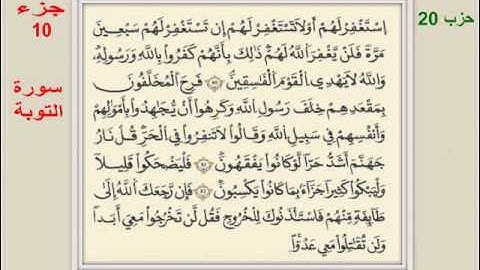 جزء
10
حزب 20
سورة
التوبة
اِسْتَغْفِرْ لَهُمْ أَوْ لَا تَسْتَغْفِرْ لَهُمْ إِن تَسْتَغْفِرْ لَهُمْ سَبْعِينَ
مَرَّةً فَلَنْ يَغْفِرَ اللَّهُ لَهُمْ ذَٰلِكَ بِأَنَّهُمْ كَفَرُوا بِاللَّهِ وَرَسُولِهِ
وَاللَّهُ لَا يَهْدِي الْقَوْمَ الْفَاسِقِينَ ۝ فَرِحَ الْمُخَلَّفُونَ
بِمَقْعَدِهِمْ خِلَافَ رَسُولِ اللَّهِ وَكَرِهُوا أَنْ يُجَاهِدُوا بِأَمْوَالِهِمْ
وَأَنْفُسِهِمْ فِي سَبِيلِ اللَّهِ وَقَالُوا لَا تَنْفِرُوا فِي الْحَرِّ قُلْ نَارُ
جَهَنَّمَ أَشَدُّ حَرًّا لَّوْ كَانُوا يَفْقَهُونَ ۝ فَلْيَضْحَكُوا قَلِيلًا
وَلْيَبْكُوا كَثِيرًا جَزَاءً بِمَا كَانُوا يَكْسِبُونَ ۝ فَإِن رَّجَعَكَ اللَّهُ إِلَىٰ
طَائِفَةٍ مِّنْهُمْ فَاسْتَأْذَنُوكَ لِلْخُرُوجِ فَقُل لَّن تَخْرُجُوا مَعِيَ أَبَدًا
وَلَن تُقَاتِلُوا مَعِيَ عَدُوًّا